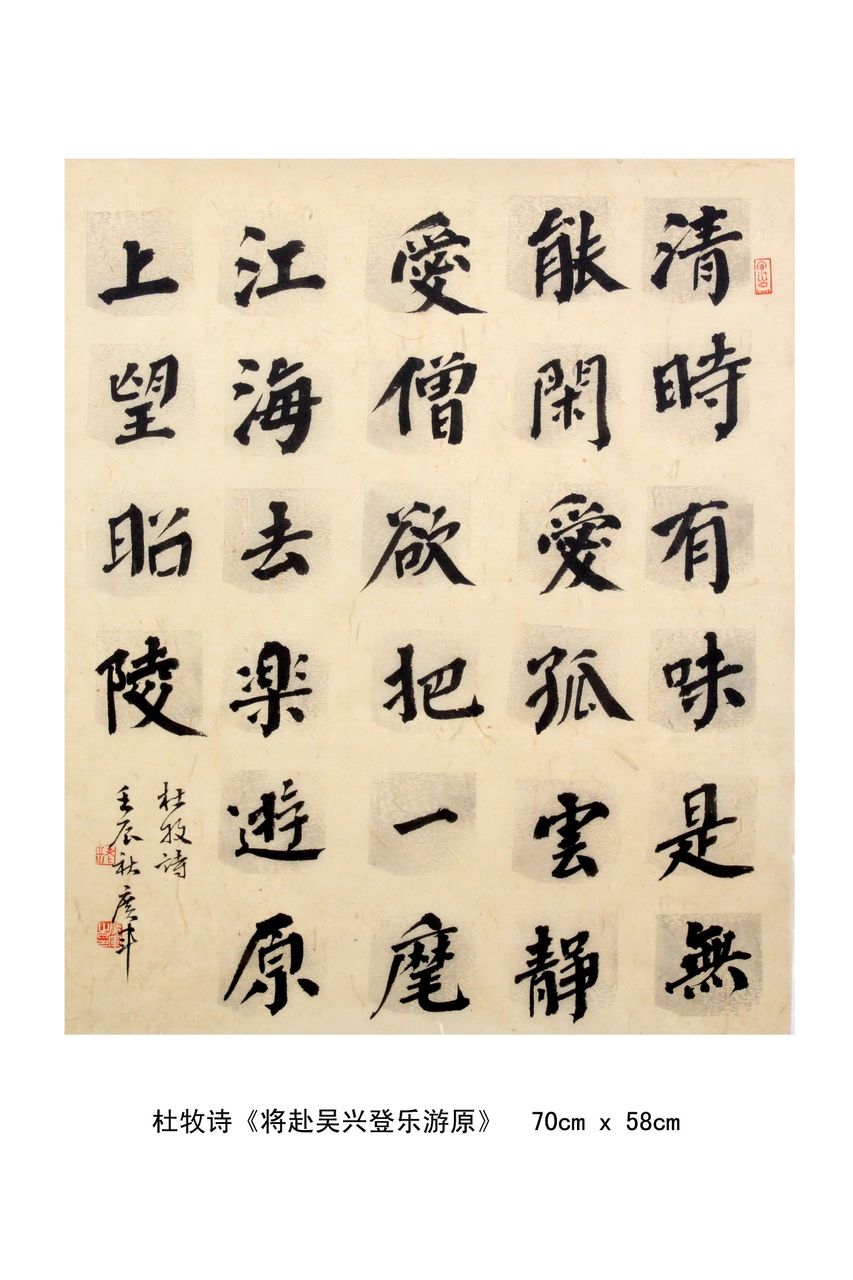 清時有味是無
能閑愛孤雲静
愛僧欲把一麾
江海去楽遊原
上望昭陵
杜牧詩
壬辰秋
杜牧诗《将赴吴兴登乐游原》 70cm x 58cm